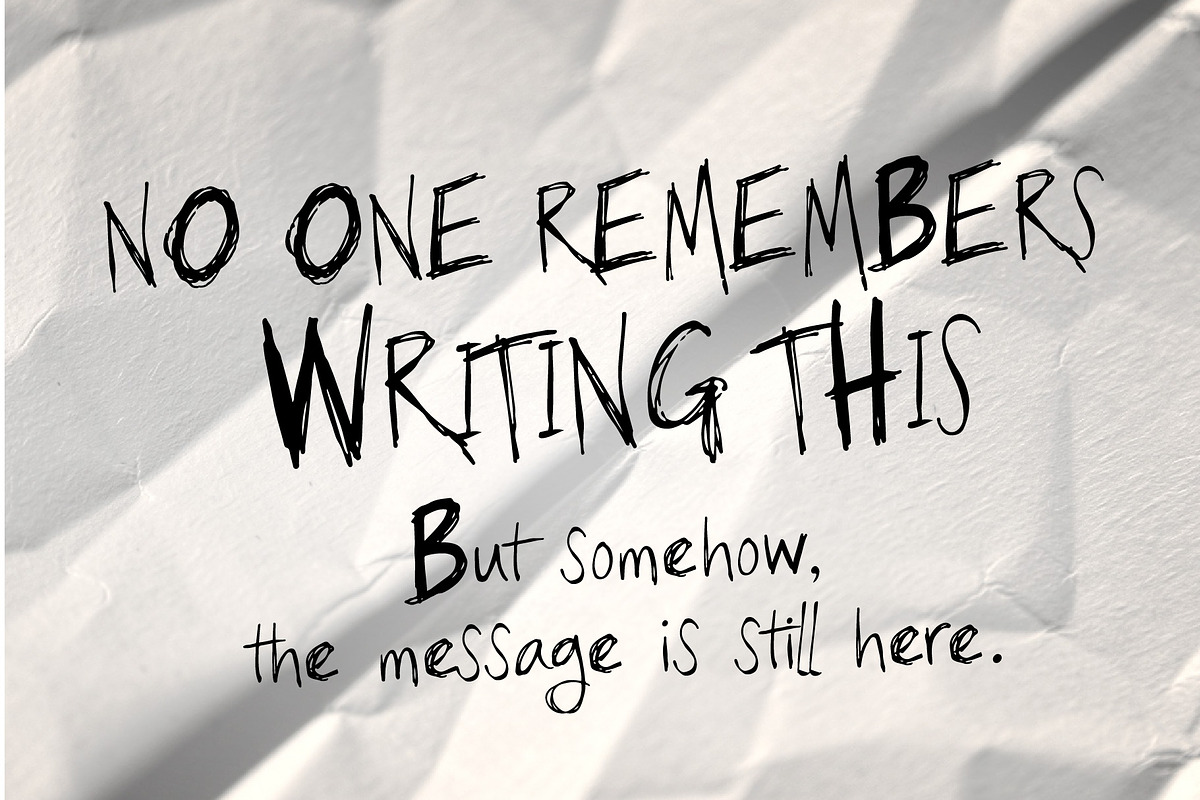 NO ONE REMEMBERS
WRITING THIS
But somehow,
the message is still here.